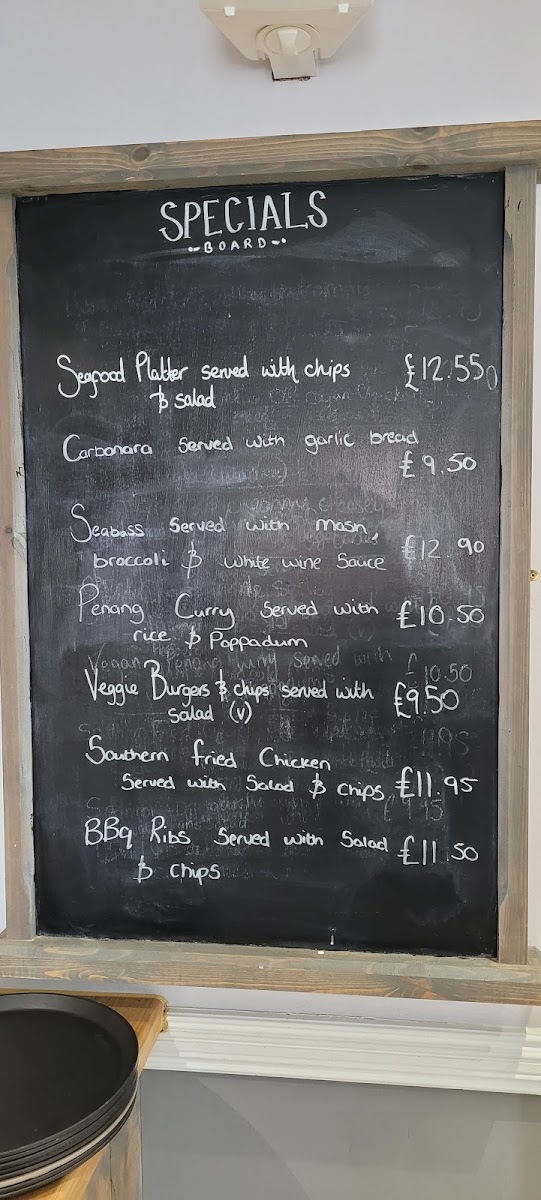 SPECIALS
BOARD
Seafood Platter served with chips £12.550
& salad
Carbonara served with garlic bread
£9.50
Seabass served with mash,
broccoli & white wine sauce £12.90
Penang Curry served with £10.50
rice & Poppadum
Vegan Penang Curry served with £10.50
Veggie Burgers & chips served with £9.50
salad (v)
Southern fried Chicken
served with Salad & chips £11.95
BBq Ribs served with Salad £11.50
& chips